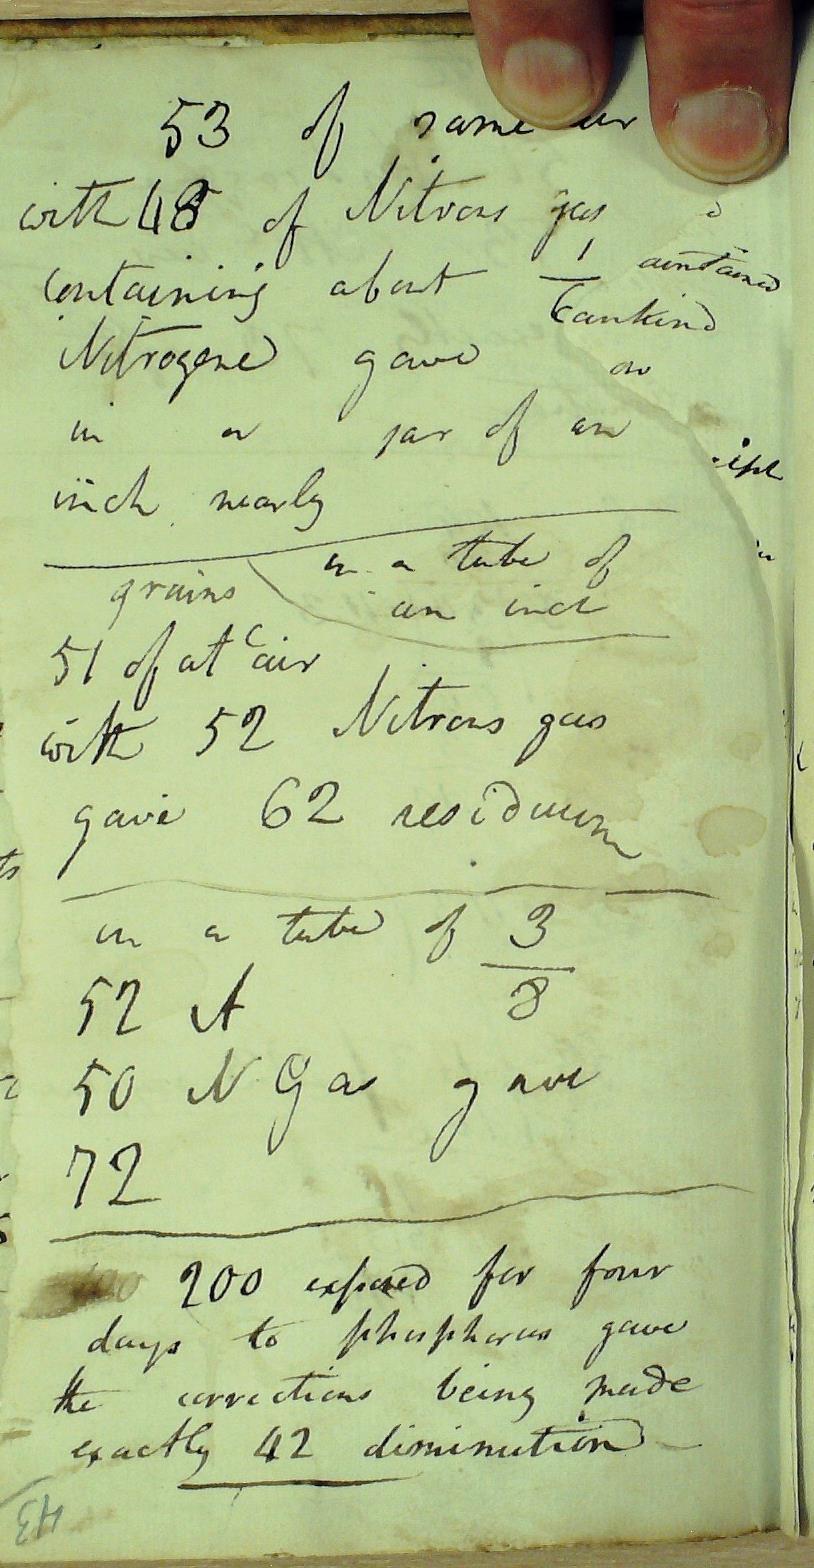 53 of same air
with 48 of Nitrous gas
containing about 1/6
Nitrogene gave
in a jar of an
inch nearly
in a tube of
an inch
grains
51 of atc air
with 52 Nitrous gas
gave 62 residuum
in a tube of 3/8
52 A
50 N Gas gave
72
200 exposed for four
days to phosphorus gave
the corrections being made
exactly 42 diminution